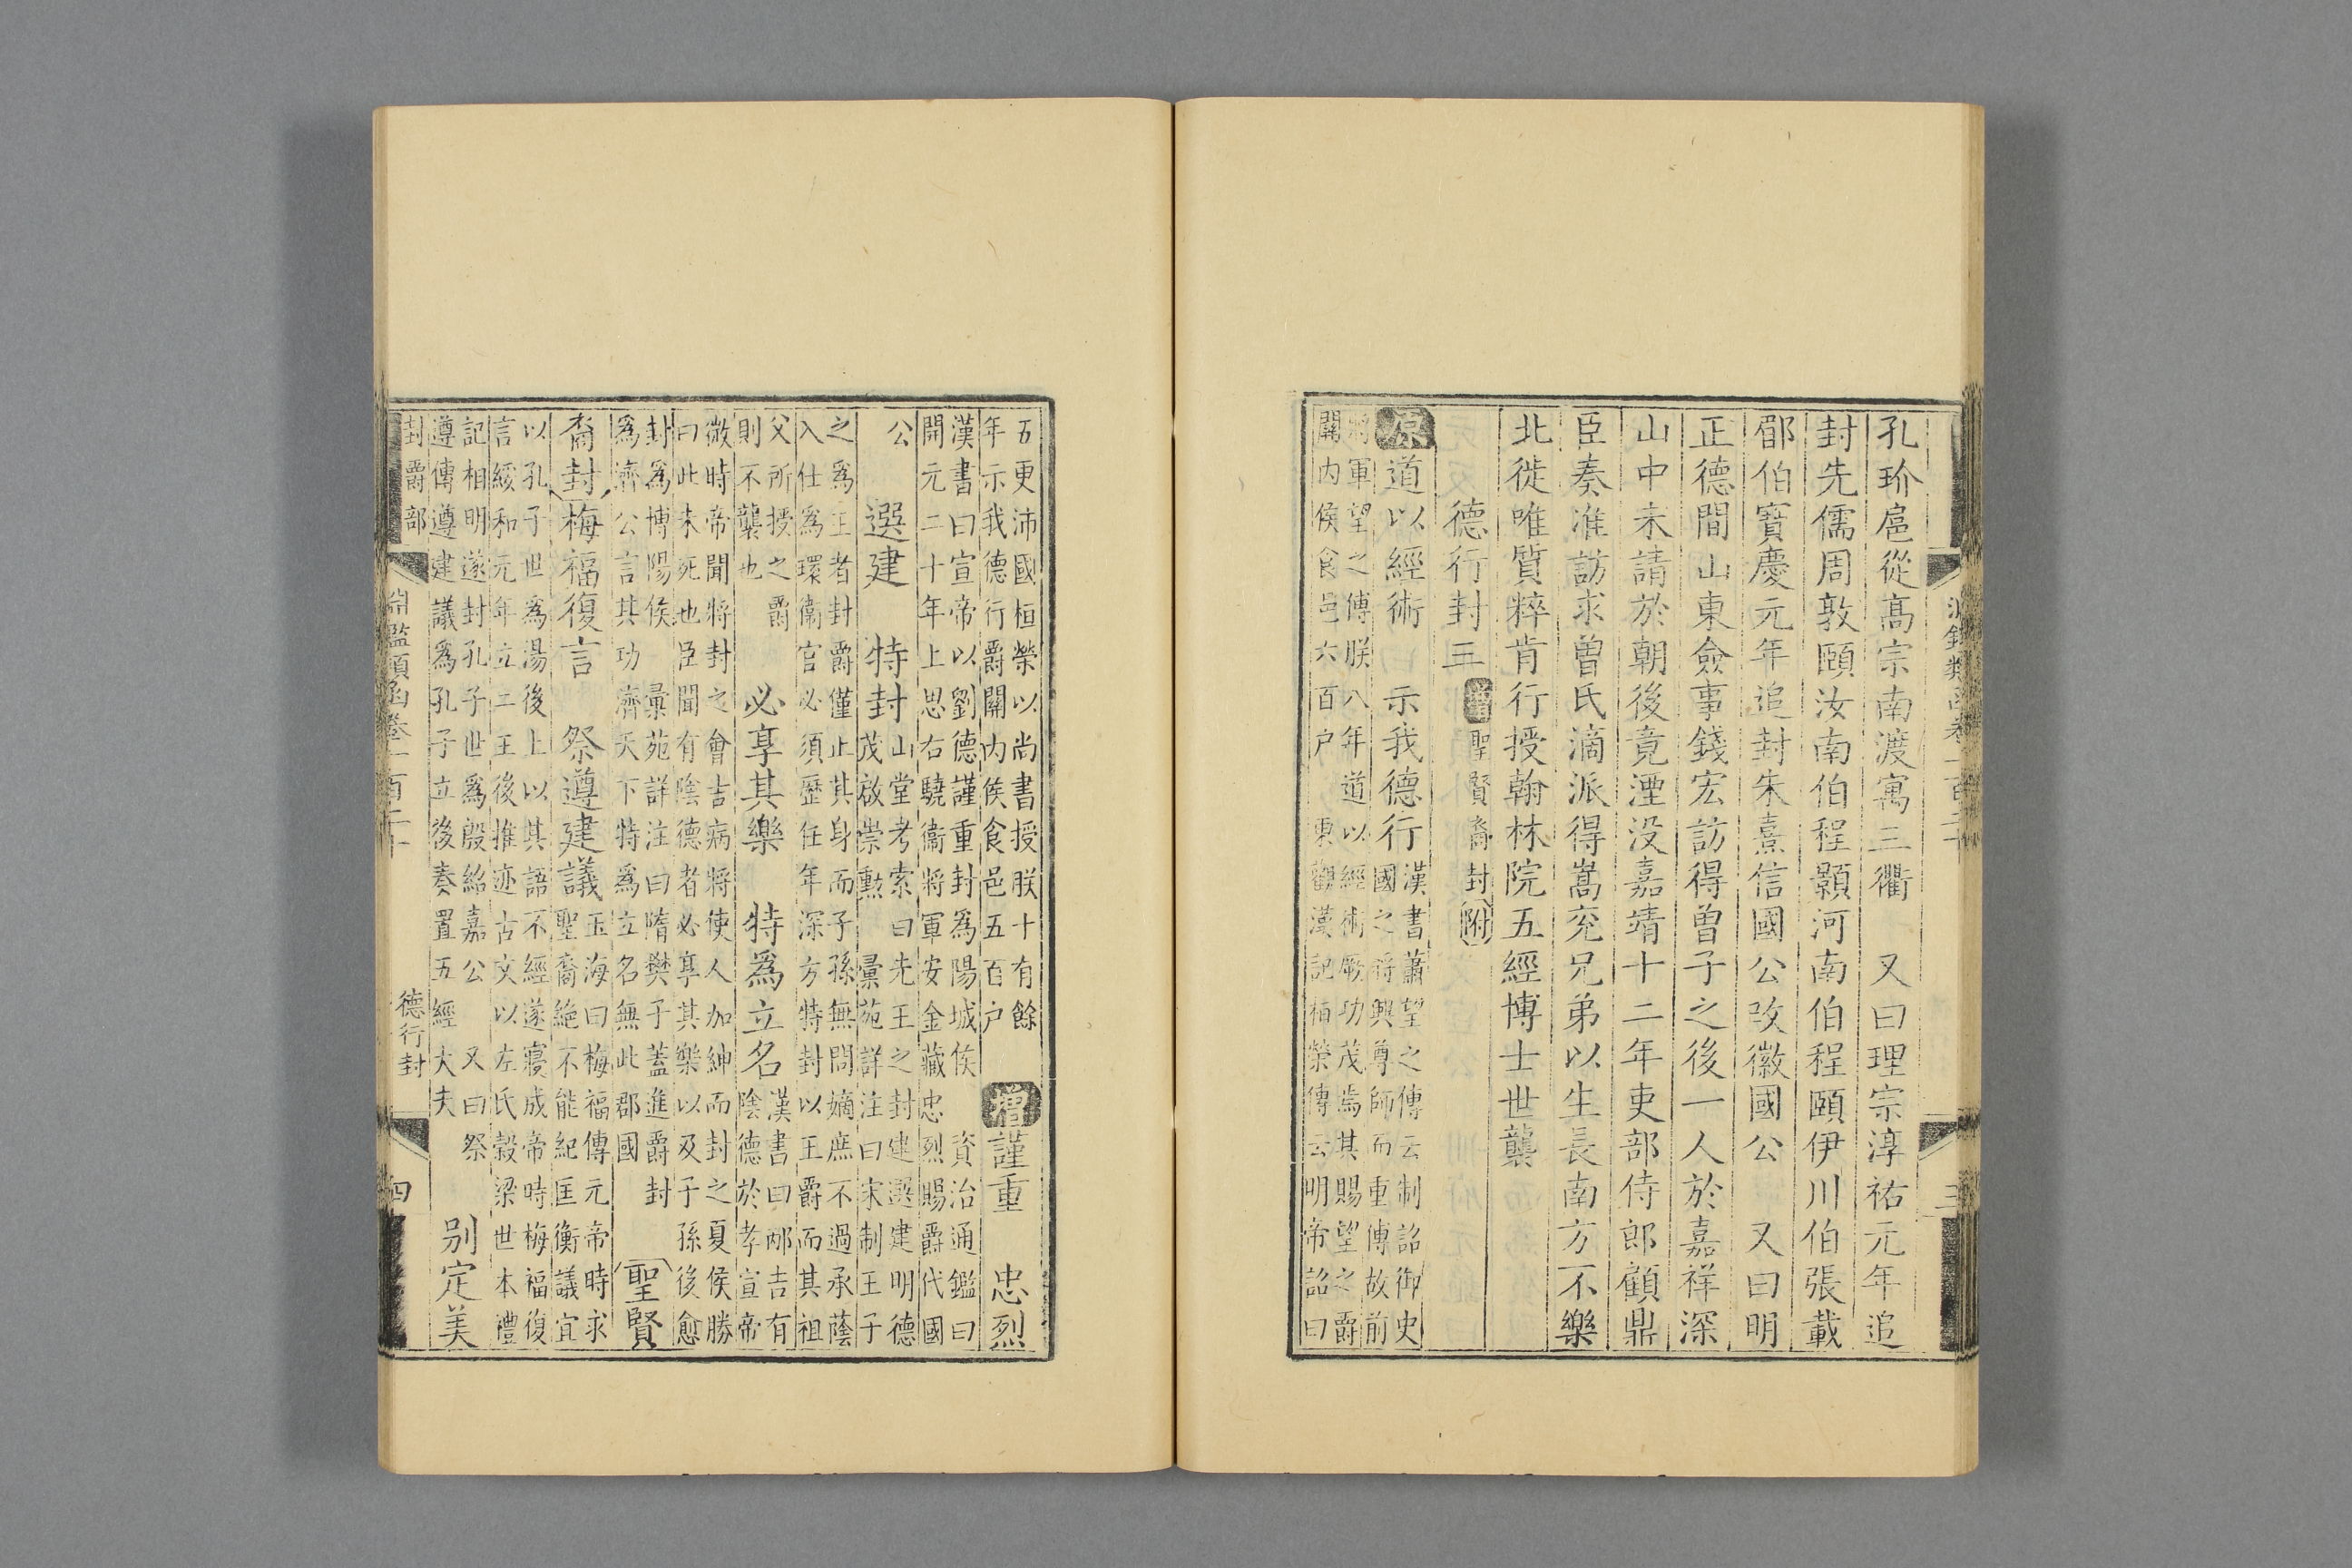 孔玠扈從高宗南渡寓三衢　又曰理宗淳祐元年追
封先儒周敦頤汝南伯程顥河南伯程頤伊川伯張載
郿伯寳慶元年追封朱熹信國公改徽國公　又曰明
正德間山東僉事錢宏訪得曾子之後一人於嘉祥深
山中未請於朝後竟湮没嘉靖十二年吏部侍郎顧鼎
臣奏准訪求曾氏滴派得嵩兖兄弟以生長南方不樂
北徙唯質粹肯行授翰林院五經博士世襲
德行封三 增聖賢裔封附
原道以經術　示我德行
漢書蕭望之傳云制詔御史
國之將興尊師而重傳故前
將軍望之傅朕八年道以經術厥功茂焉其賜望之爵
關内侯食邑六百户　東觀漢記桓榮傳云明帝詔曰
五更沛國桓榮以尚書授朕十有餘
年示我德行爵關内侯食邑五百户
增謹重　忠烈
漢書曰宣帝以劉德謹重封爲陽城侯　資治通鑑曰
開元二十年上思右驍衛將軍安金藏忠烈賜爵代國
公
選建　特封
山堂考索曰先王之封建選建明德
茂啟崇勲　彚苑詳注曰宋制王子
之爲王者封爵僅止其身而子孫無問嫡庶不過承蔭
入仕爲環衛官必須歷任年深方特封以王爵而其祖
父所授之爵
則不襲也
必享其樂　特爲立名
漢書曰邴吉有
陰德於孝宣帝
微時帝聞將封之會吉病將使人加紳而封之夏侯勝
曰此未死也臣聞有陰德者必享其樂以及子孫後愈
封爲博陽侯　彚苑詳注曰隋樊子蓋進爵封
爲濟公言其功濟天下特爲立名無此郡國
聖賢
裔封
梅福復言　祭遵建議
玉海曰梅福傳元帝時求
聖裔絶不能紀匡衡議宜
以孔子世爲湯後上以其語不經遂寢成帝時梅福復
言綏和元年立二王後推迹古文以左氏榖梁世本禮
記相明遂封孔子世爲殷紹嘉公　又曰祭
遵傳遵建議爲孔子立後奏置五經大夫
别定美
封爵部
淵鑑類函卷一百二十
德行封
四